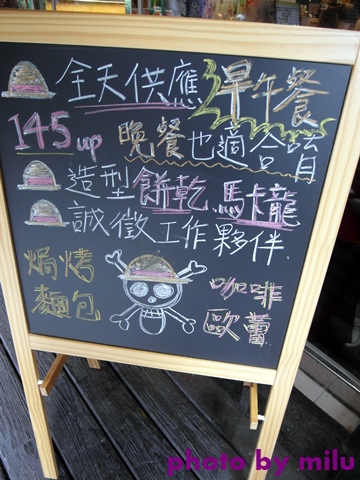 全天供應早午餐
145up 晚餐也適合唷
造型餅乾 馬卡龍
誠徵工作夥伴
焗烤
麵包
咖啡
歐蕾
photo by milu